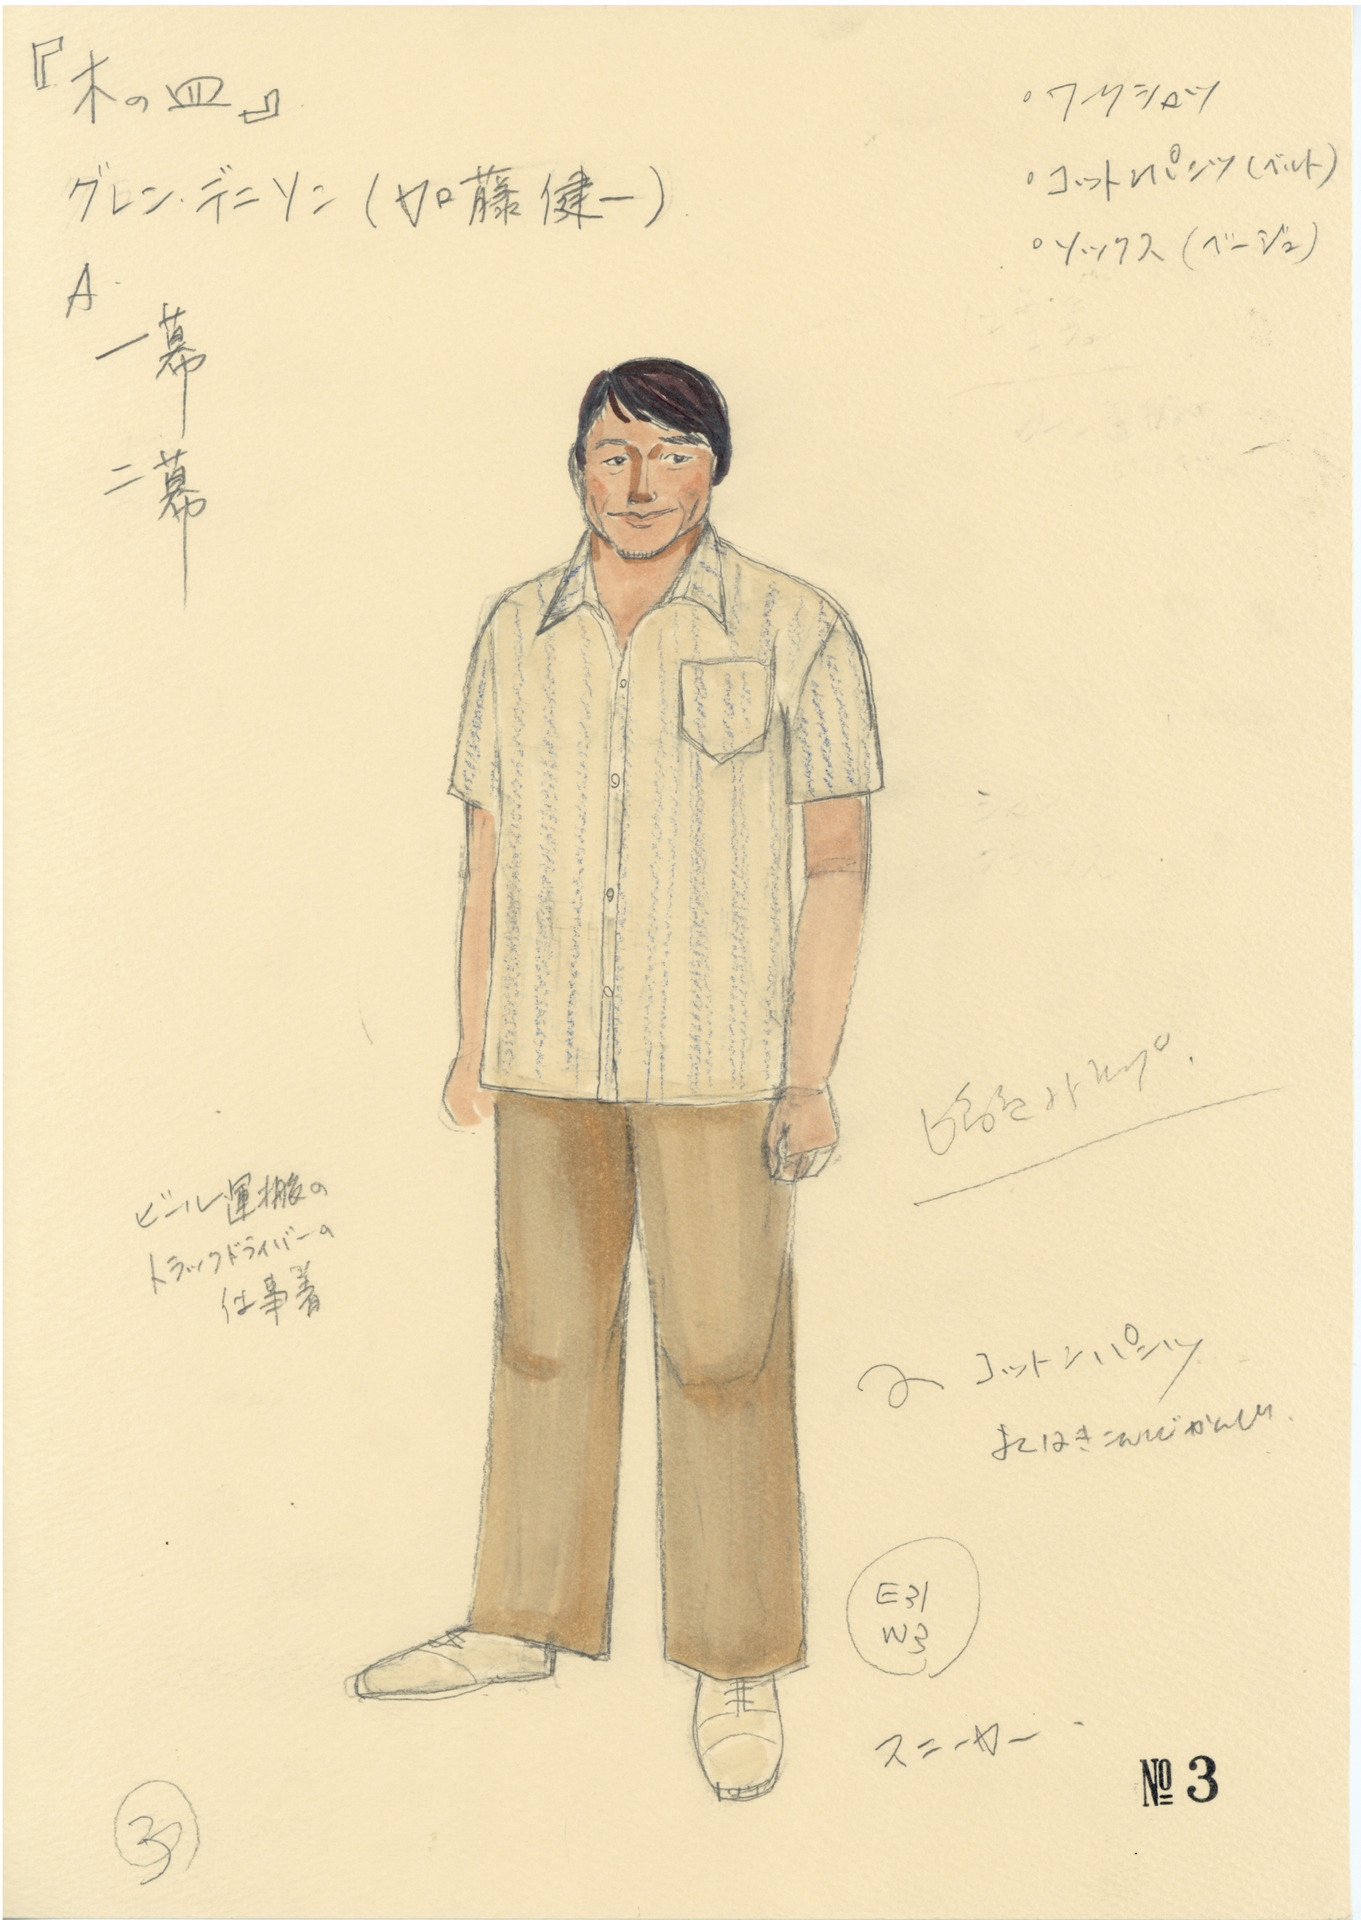 『木の皿』
グレン・デニソン(加藤健一)
A.
一幕
二幕
○ワークシャツ
○コットンパンツ(ベルト)
○ソックス(ベージュ)
ビール運搬の
トラックドライバーの
仕事着
コットンパンツ
E31
W3
スニーカー
№3